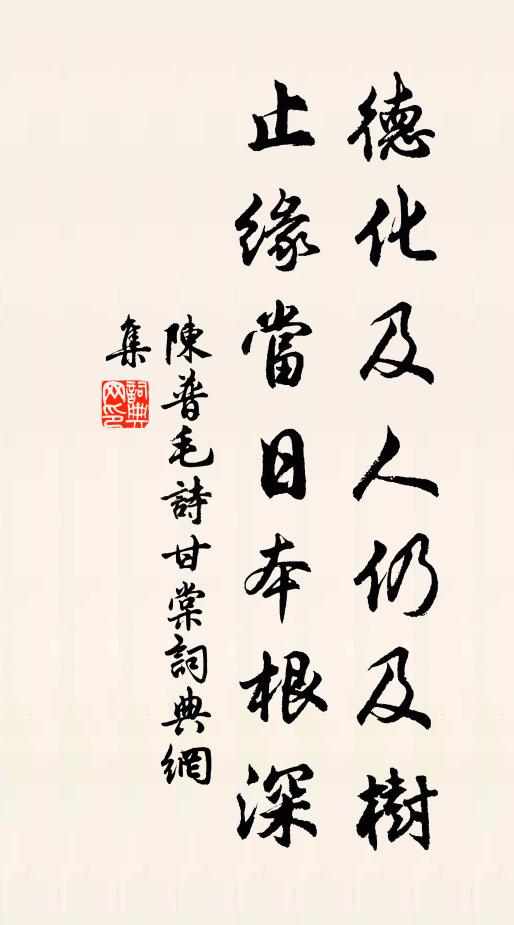 德化及人仍及樹
止緣當日本根深
陳普毛詩甘棠詞典網
集
詞典
网印